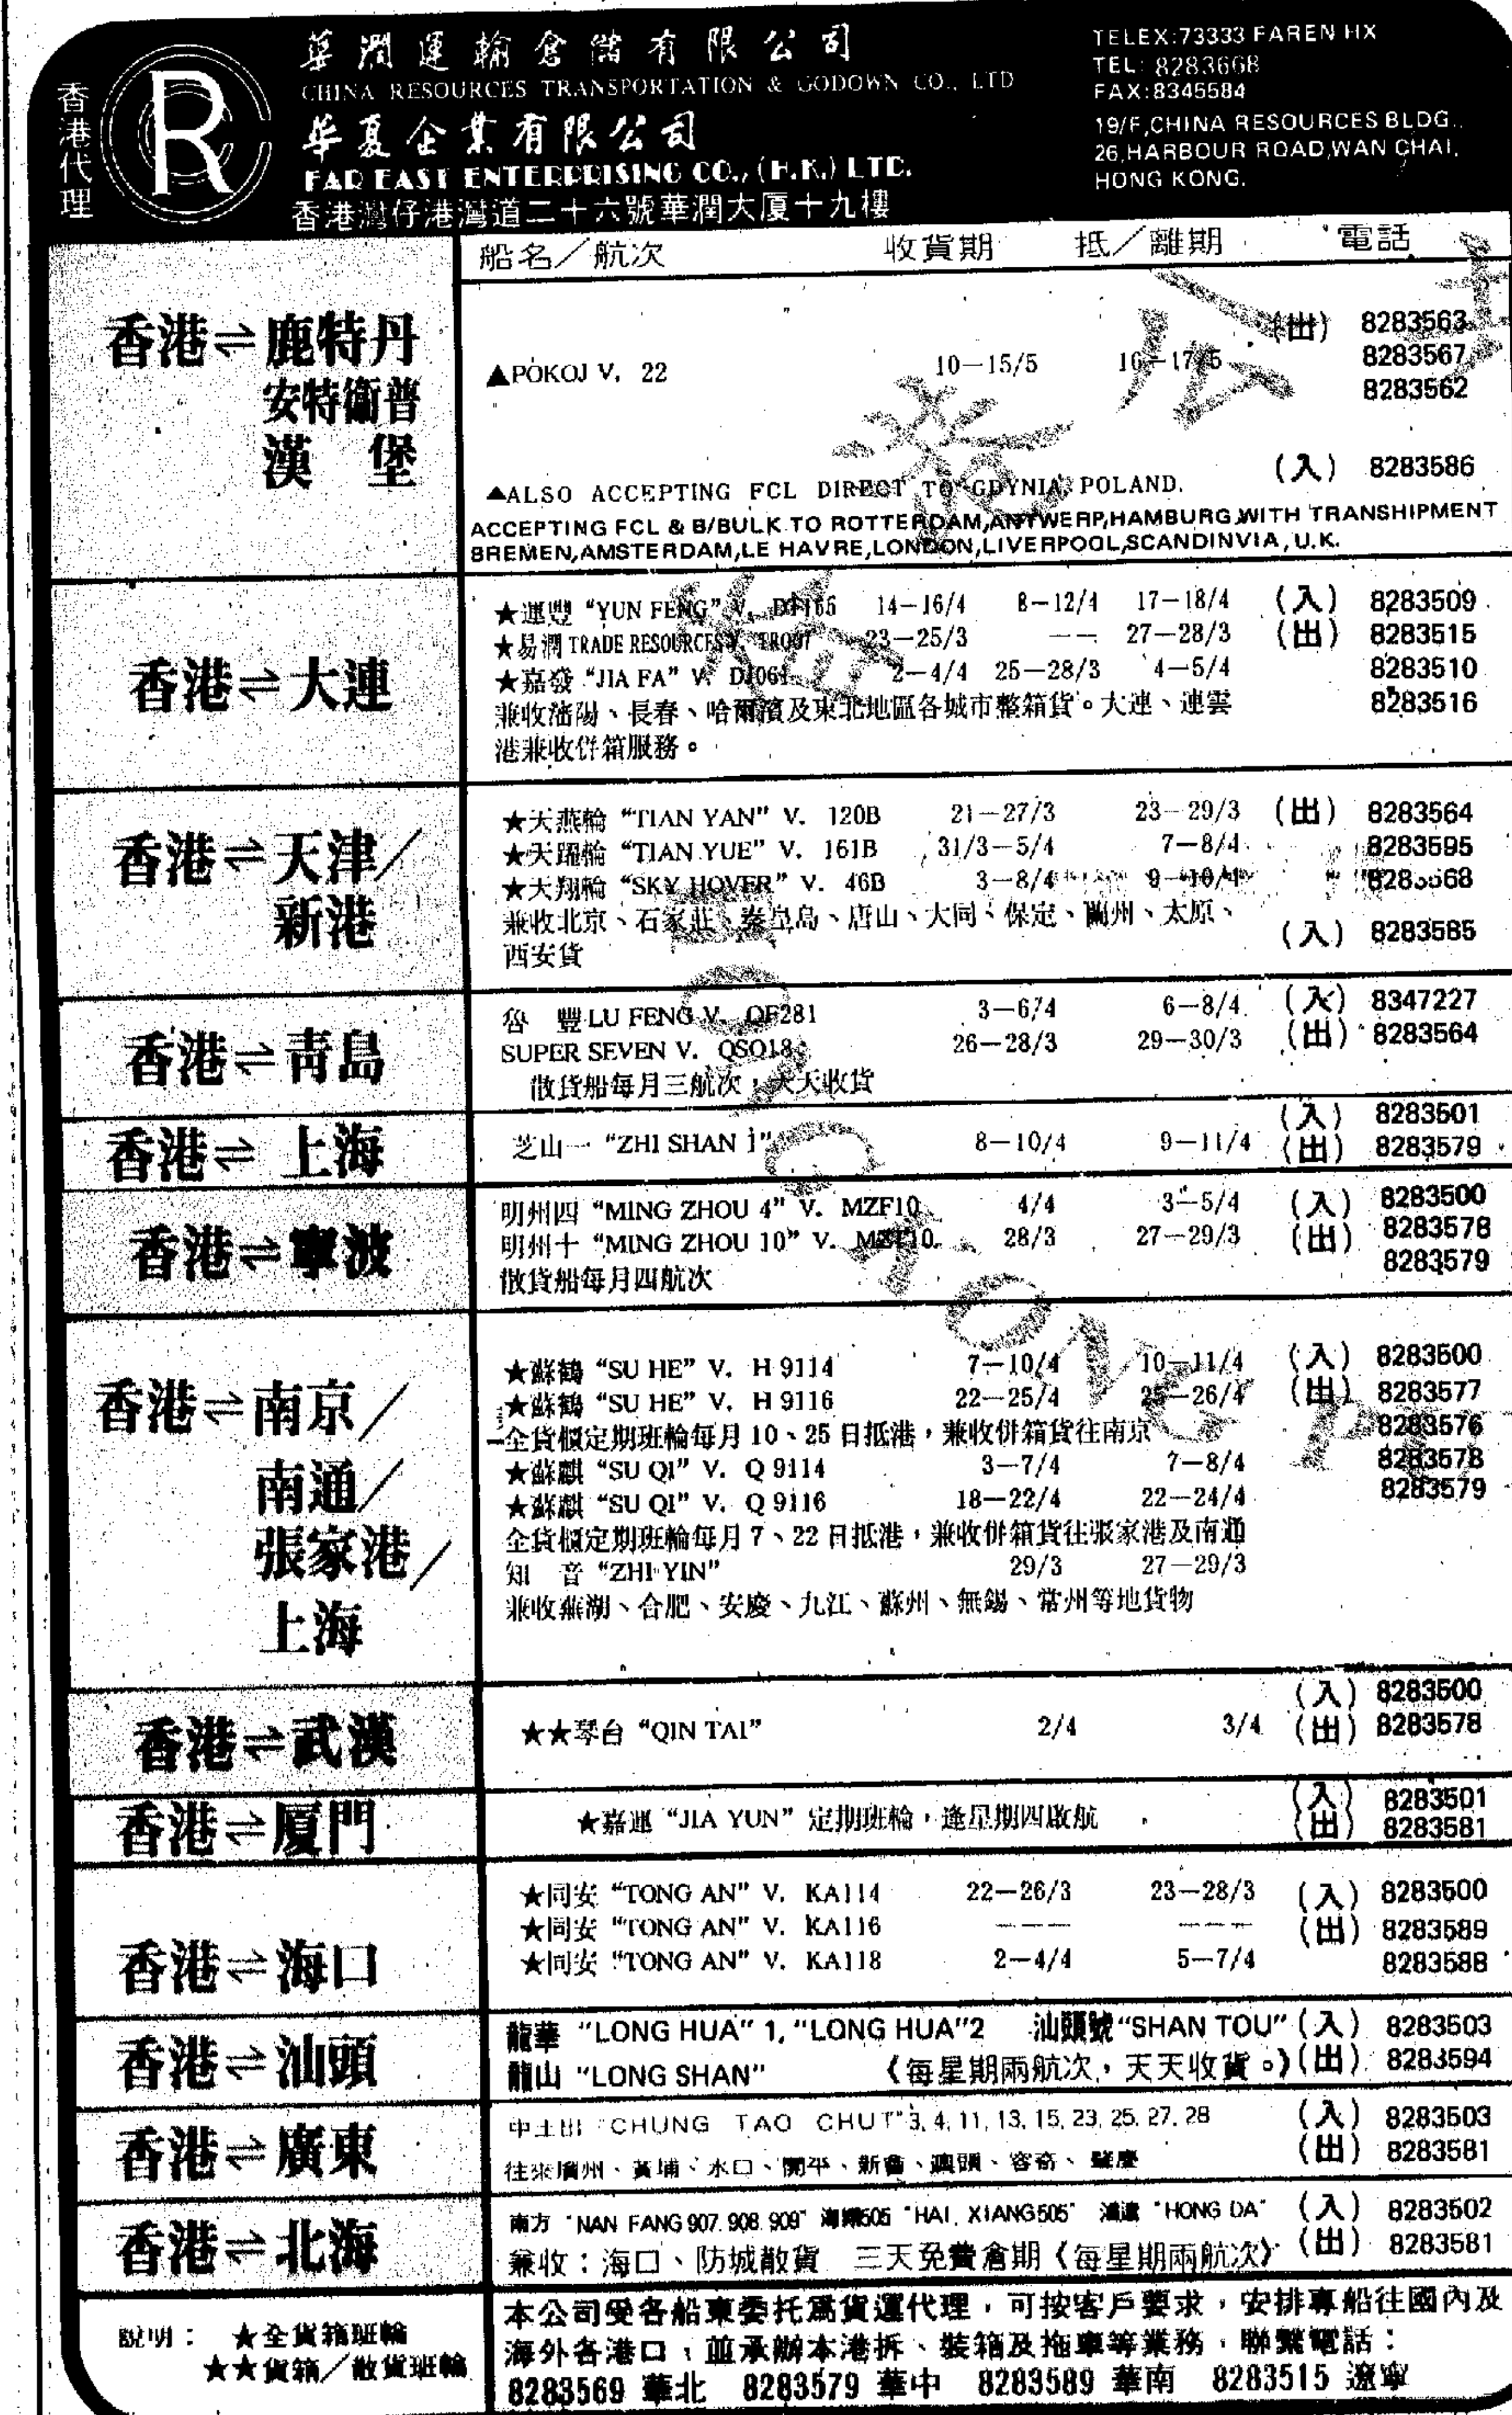 香港代理
R
華潤運輸倉儲有限公司
CHINA RESOURCES TRANSPORTATION & GODOWN CO., LTD
華夏企業有限公司
FAR EAST ENTERPRISING CO., (H.K.) LTD.
香港灣仔港灣道二十六號華潤大厦十九樓
TELEX:73333 FAREN HX
TEL: 8283668
FAX:8345584
19/F,CHINA RESOURCES BLDG.,
26,HARBOUR ROAD,WAN CHAI,
HONG KONG.
船名／航次 收貨期 抵／離期 電話
香港⇌鹿特丹
安特衞普
漢堡
▲POKOJ V. 22 10—15/5 16—17/5 (出) 8283563
8283567
8283562
(入) 8283586
▲ALSO ACCEPTING FCL DIRECT TO GDYNIA, POLAND.
ACCEPTING FCL & B/BULK TO ROTTERDAM,ANTWERP,HAMBURG,WITH TRANSHIPMENT
BREMEN,AMSTERDAM,LE HAVRE,LONDON,LIVERPOOL,SCANDINVIA, U.K.
香港⇌大連
★運豐 “YUN FENG” V. 14—16/4 8—12/4 17—18/4 (入) 8283509
★易潤 TRADE RESOURCES V. 23—25/3 —— 27—28/3 (出) 8283515
★嘉發 “JIA FA” V. DJ061 2—4/4 25—28/3 4—5/4 8283510
兼收瀋陽、長春、哈爾濱及東北地區各城市整箱貨。大連、連雲 8283516
港兼收併箱服務。
香港⇌天津／
新港
★天燕輪 “TIAN YAN” V. 120B 21—27/3 23—29/3 (出) 8283564
★天躍輪 “TIAN YUE” V. 161B 31/3—5/4 7—8/4 8283595
★天翔輪 “SKY HOVER” V. 46B 3—8/4 9—10/4 8283568
兼收北京、石家莊、秦皇島、唐山、大同、保定、蘭州、太原、
西安貨 (入) 8283585
香港⇌青島
魯豐 LU FENG V. QF281 3—6/4 6—8/4 (入) 8347227
SUPER SEVEN V. QSO18 26—28/3 29—30/3 (出) 8283564
散貨船每月三航次，天天收貨
香港⇌上海
芝山一 “ZHI SHAN 1” 8—10/4 9—11/4 (入) 8283501
(出) 8283579
香港⇌寧波
明州四 “MING ZHOU 4” V. MZF10 4/4 3—5/4 (入) 8283500
明州十 “MING ZHOU 10” V. MZT10 28/3 27—29/3 (出) 8283578
散貨船每月四航次 8283579
香港⇌南京／
南通／
張家港／
上海
★蘇鶴 “SU HE” V. H 9114 7—10/4 10—11/4 (入) 8283500
★蘇鶴 “SU HE” V. H 9116 22—25/4 25—26/4 (出) 8283577
全貨櫃定期班輪每月 10、25 日抵港，兼收併箱貨往南京 8283576
★蘇麒 “SU QI” V. Q 9114 3—7/4 7—8/4 8283578
★蘇麒 “SU QI” V. Q 9116 18—22/4 22—24/4 8283579
全貨櫃定期班輪每月 7、22 日抵港，兼收併箱貨往張家港及南通
知音 “ZHI YIN” 29/3 27—29/3
兼收蕪湖、合肥、安慶、九江、蘇州、無錫、常州等地貨物
香港⇌武漢
★★琴台 “QIN TAI” 2/4 3/4 (入) 8283500
(出) 8283578
香港⇌厦門
★嘉運 “JIA YUN” 定期班輪，逢星期四啟航 (入) 8283501
(出) 8283581
香港⇌海口
★同安 “TONG AN” V. KA114 22—26/3 23—28/3 (入) 8283500
★同安 “TONG AN” V. KA116 ——— ——— (出) 8283589
★同安 “TONG AN” V. KA118 2—4/4 5—7/4 8283588
香港⇌汕頭
龍華 “LONG HUA” 1, “LONG HUA”2 汕頭號“SHAN TOU” (入) 8283503
龍山 “LONG SHAN” 《每星期兩航次，天天收貨。》 (出) 8283594
香港⇌廣東
中土出 “CHUNG TAO CHUT” 3, 4, 11, 13, 15, 23, 25, 27, 28 (入) 8283503
往來廣州、黃埔、水口、開平、新會、澳頭、容奇、肇慶 (出) 8283581
香港⇌北海
南方 “NAN FANG 907. 908. 909” 海鑲505 “HAI. XIANG505” 鴻達 “HONG DA” (入) 8283502
兼收：海口、防城散貨 三天免費倉期《每星期兩航次》 (出) 8283581
說明： ★全貨箱班輪
★★貨箱／散貨班輪
本公司受各船東委托爲貨運代理，可按客戶要求，安排專船往國內及
海外各港口，並承辦本港拆、裝箱及拖車等業務，聯繫電話：
8283569 華北 8283579 華中 8283589 華南 8283515 遼寧